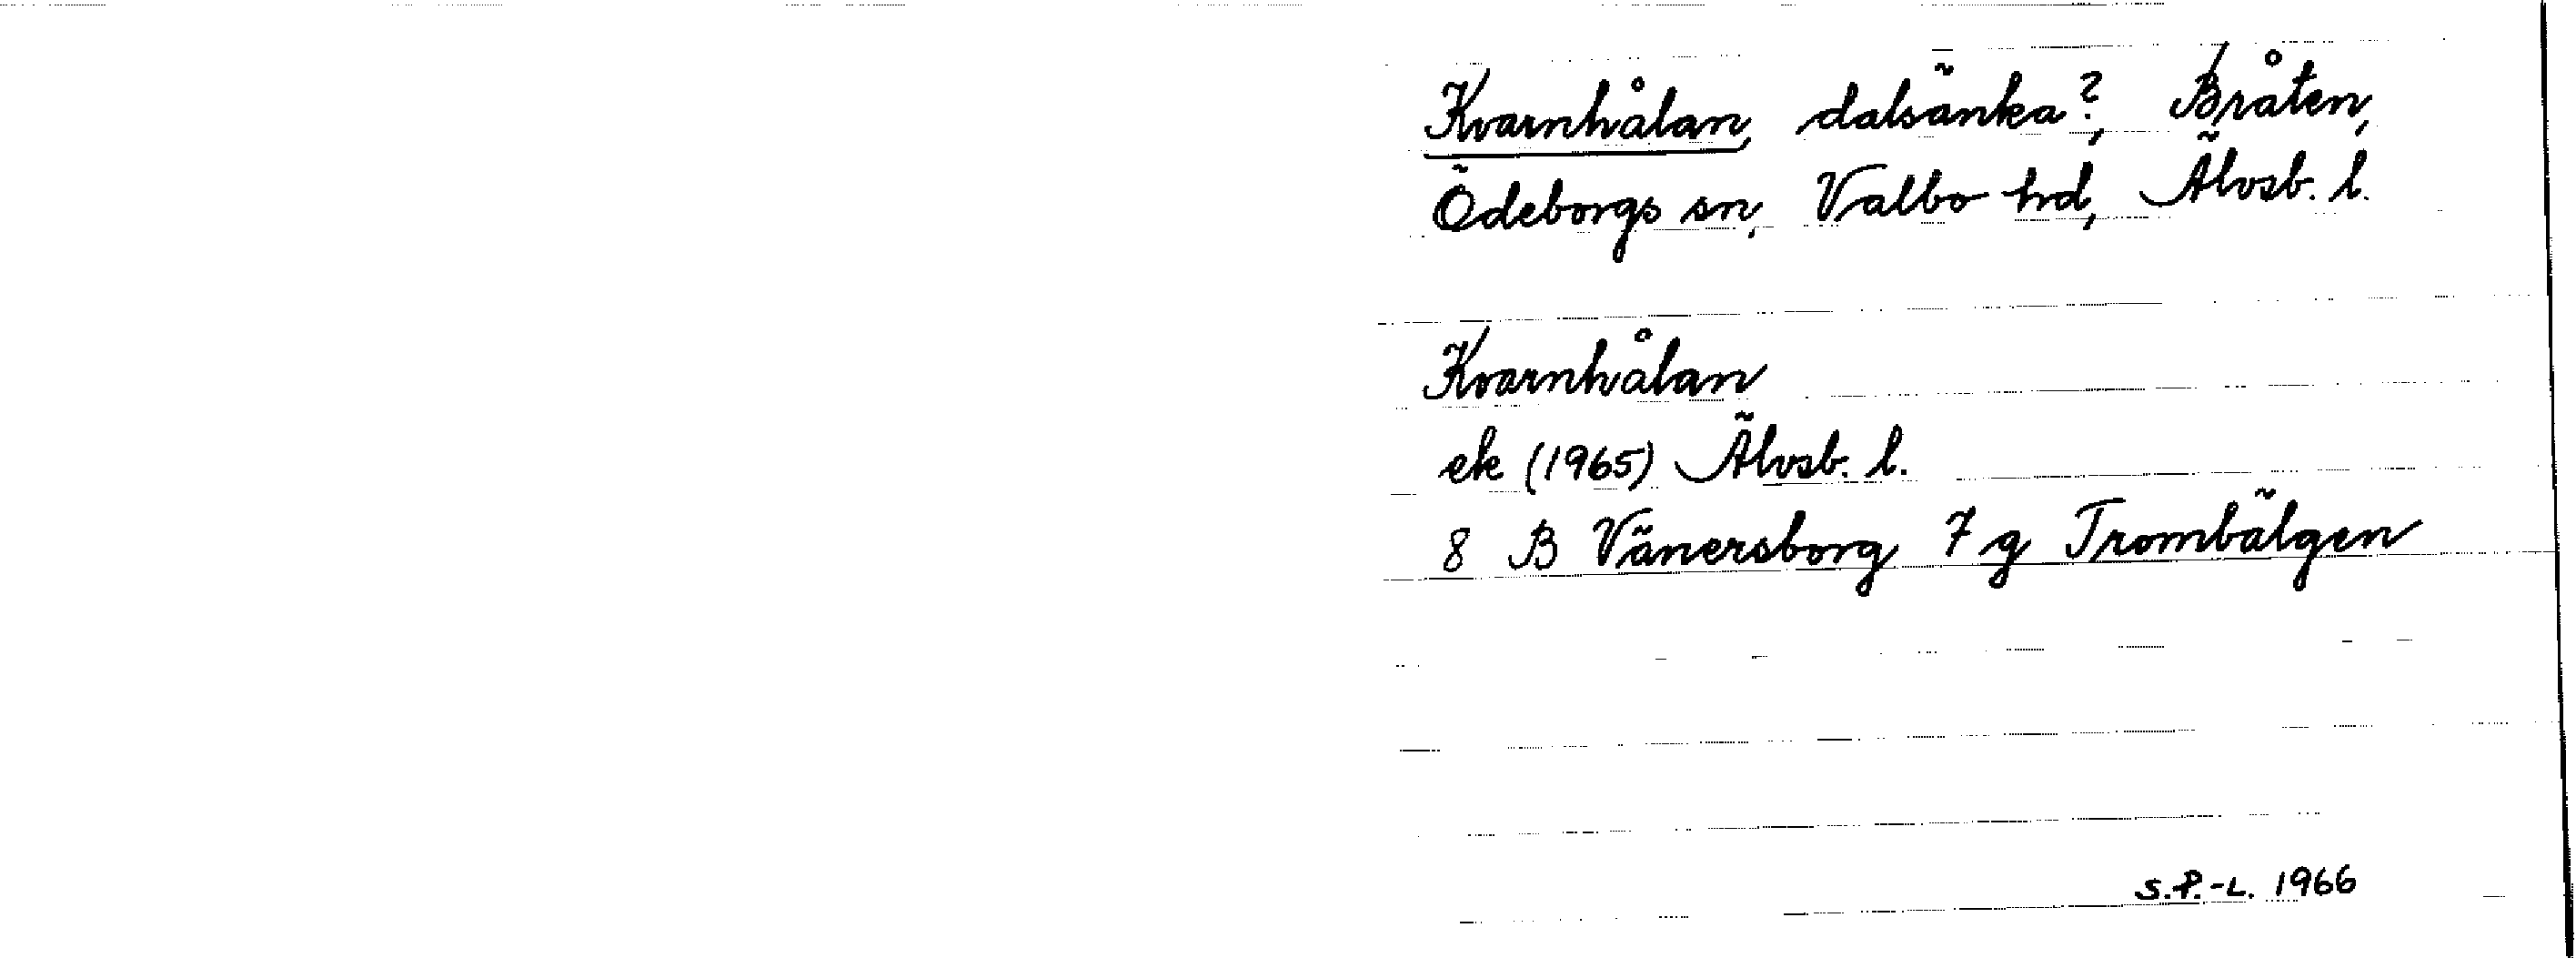 Kvarnhålan, dalsänka?, Bråten,
Ödeborgs sn, Valbo hd, Älvsb. l.
Kvarnhålan
ek (1965) Älvsb. l.
8 B Vänersborg 7 g Trombälgen
S.P.-L. 1966